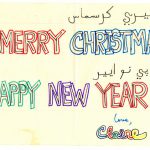 ميري كرسماس
MERRY CHRISTMA
نو ايير
APPY NEW YEAR
Love,
Claire